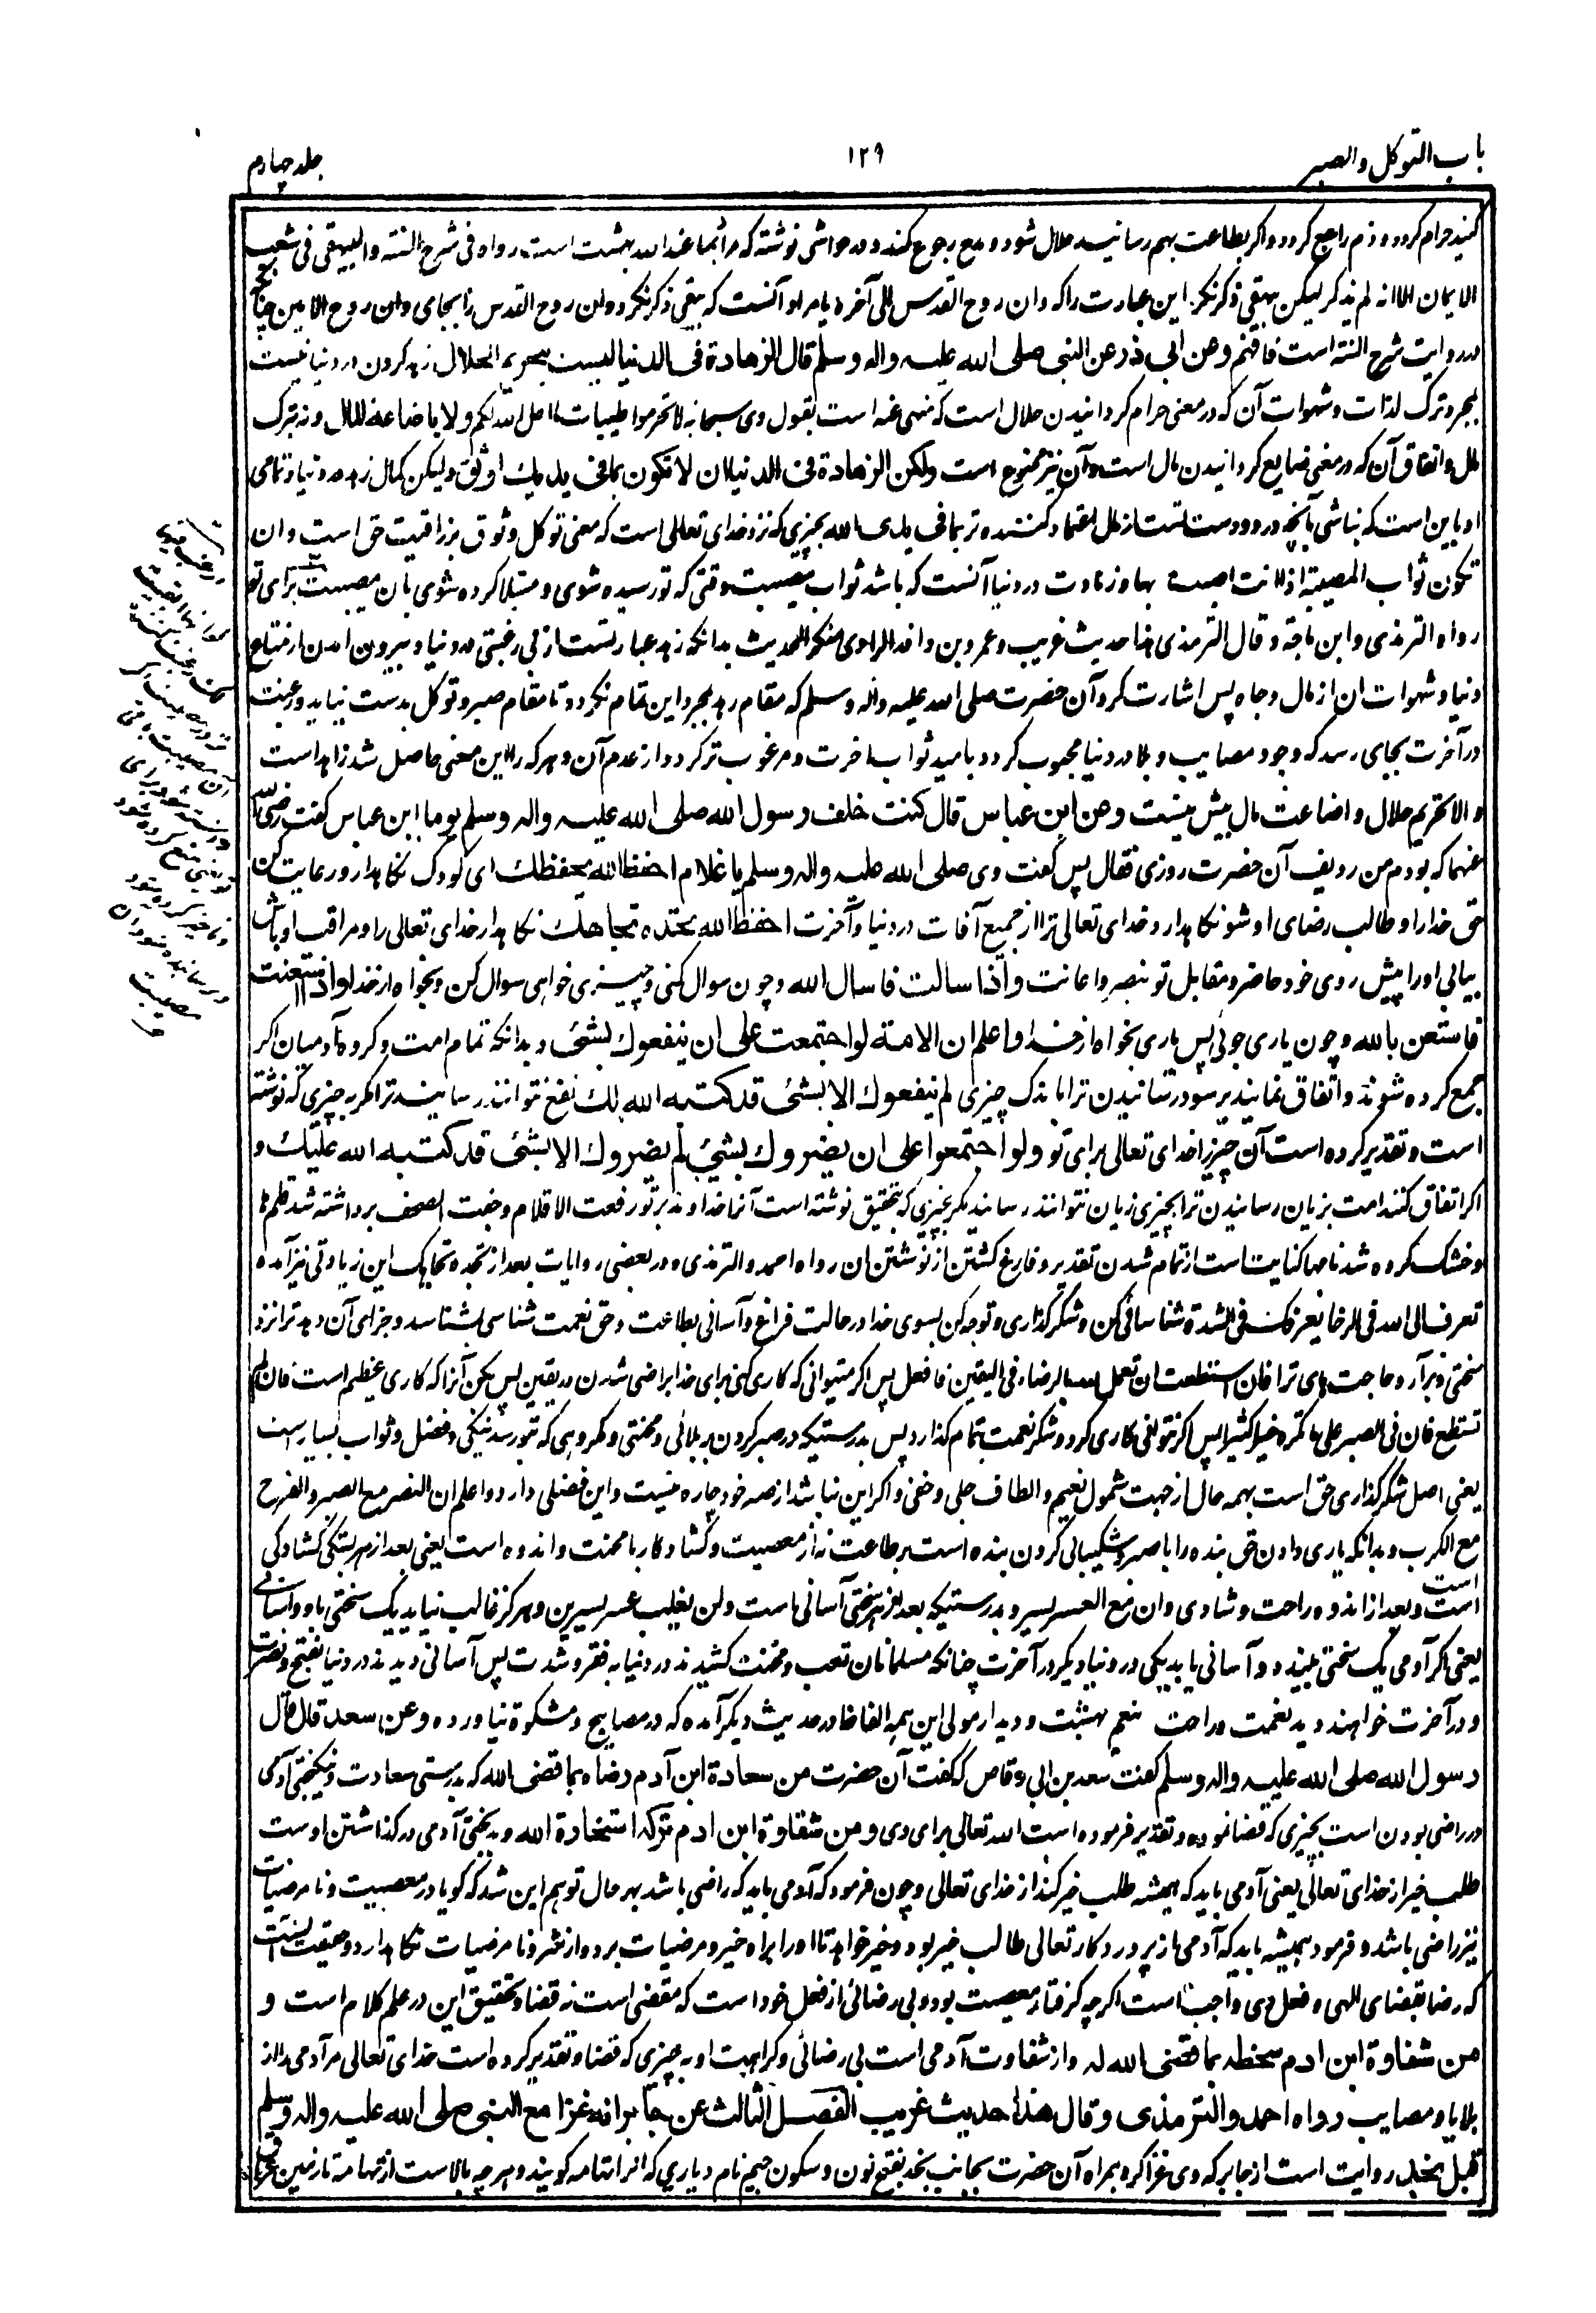 باب التوكل والصبر
۱۲۹
جلد چهارم
كنيد حرام كردد و ذم راجع كردد و اكر بطاعت بهم رسانيد حلال شود و مدح رجوع كند و در حواشى نوشته كه مرائبما عند الله بهشت است رواه فى شرح السنة والبيهقى فى شعب
الايمان الا انه لم يذكر ليكن بيهقى ذكر نكرد اين عبارت را كه وان روح القدس الى آخره يا مراد آنست كه بيهقى ذكر نكرد وان روح القدس را بجاى وان روح الامين چنانچه
در روايت شرح السنة است فافهم وعن ابى ذر عن النبى صلى الله عليه واله وسلم قال الزهادة فى الدنيا ليست بتحريم الحلال زهد كردن در دنيا نيست
بمجرد ترك لذات و شهوات آن كه در معنى حرام كردانيدن حلال است كه منهى عنه است بقول وى سبحانه لا تحرموا طيبات ما احل الله لكم ولا باضاعة المال و نه بترك
مال و انفاق آن كه در معنى ضايع كردانيدن مال است و آن نيز ممنوع است ولكن الزهادة فى الدنيا ان لا تكون بما فى يديك اوثق وليكن كمال زهد در دنيا و تمامى
او باين است كه نباشى بآنچه در دو دست تست از مال اعتماد كننده تر بما فى يدى الله بچيزى كه نزد خداى تعالى است كه معنى توكل وثوق برزاقيت حق است وان
تكون ثواب المصيبة اذا انت اصبت بها و زهادت در دنيا آنست كه باشد ثواب مصيبت وقتى كه تو رسيده شوى و مبتلا كرده شوى بان مصيبت براى تو
رواه الترمذى وابن ماجة وقال الترمذى هذا حديث غريب وعمرو بن واقد الراوى منكر الحديث بدانكه زهد عبارتست از بى رغبتى در دنيا و بيرون امدن از متاع
دنيا و شهوات ان از مال و جاه پس اشارت كرد آن حضرت صلى الله عليه واله وسلم كه مقام زهد بمجرد اين تمام نكردد تا مقام صبر و توكل بدست نيايد و رغبت
در آخرت بجاى رسد كه وجود مصايب و بلا در دنيا محبوب كردد باميد ثواب اخرت و مرغوب تر كردد از عدم آن و هر كه را اين معنى حاصل شد زاهد است
والا تحريم حلال و اضاعت مال بيش نيست وعن ابن عباس قال كنت خلف رسول الله صلى الله عليه واله وسلم يوما ابن عباس كفت رضى الله
عنهما كه بودم من رديف آن حضرت روزى فقال پس كفت وى صلى الله عليه واله وسلم يا غلام احفظ الله يحفظك اى كودك نكاهدار و رعايت كن
حق خدا را و طالب رضاى او شو نكاهدارد خداى تعالى ترا از جميع آفات در دنيا و آخرت احفظ الله تجده تجاهك نكاهدار خداى تعالى را و مراقب او باش
بيابى او را پيش روى خود حاضر و مقابل تو بنصر و اعانت واذا سالت فاسال الله و چون سوال كنى و چيزى خواهى سوال كن و بخواه از خدا واذا استعنت
فاستعن بالله و چون يارى جوئى پس يارى بخواه از خدا واعلم ان الامة لو اجتمعت على ان ينفعوك بشئ و بدانكه تمام امت و كروه آدميان اكر
جمع كرده شوند و اتفاق نمايند بر سود رسانيدن ترا باندك چيزى لم ينفعوك الا بشئ قد كتبه الله لك نفع نتوانند رسانيد ترا مكر به چيزى كه نوشته
است و تقدير كرده است آن چيز را خداى تعالى براى تو ولو اجتمعوا على ان يضروك بشئ لم يضروك الا بشئ قد كتبه الله عليك و
اكر اتفاق كنند امت بزيان رسانيدن ترا بچيزى زيان نتوانند رسانيد مكر بچيزى كه بتحقيق نوشته است آنرا خداوند بر تو رفعت الاقلام وجفت الصحف برداشته شد قلم ها
و خشك كرده شد نامها كنايت است از تمام شدن تقدير و فارغ كشتن از نوشتن ان رواه احمد والترمذى و در بعضى روايات بعد از تجده تجاهك اين زيادتى نيز آمده
تعرف الى الله فى الرخا يعرفك فى الشدة شناسائى كن و شكركذارى و توجه كن بسوى خدا در حالت فراغ و آسانى بطاعت و حق نعمت شناسى بشناسد و جزاى آن دهد ترا نزد
سختى و برآرد حاجت هاى ترا فان استطعت ان تعمل لله بالرضاء فى اليقين فافعل پس اكر ميتوانى كه كارى كنى براى خدا براضى شدن در يقين پس بكن آنرا كه كارى عظيم است فان لم
تستطع فان فى الصبر على ما تكره خيرا كثيرا پس اكر نتوانى كارى كرد و شكر نعمت تمام كذارد پس بدرستيكه در صبر كردن بر بلائى و محنتى و مكروهى كه بتو رسد نيكى و فضل و ثواب بسيار است
يعنى اصل شكركذارى حق است بهمه حال از جهت شمول نعيم و الطاف جلى و خفى و اكر اين نباشد از صبر خود چاره نيست و اين فضلى دارد واعلم ان النصر مع الصبر والفرج
مع الكرب و بدانكه يارى دادن حق بنده را با صبر و شكيبائى كردن بنده است بر طاعت نه از معصيت و كشاد كار با محنت و اندوه است يعنى بعد از هر تنكى كشادكى
است و بعد از اندوه راحت و شادى وان مع العسر يسرا و بدرستيكه بعد از هر سختى آسانى است ولن يغلب عسر يسرين و هركز غالب نيايد يك سختى با دو آسانى
يعنى اكر آدمى يك سختى بيند دو آسانى يابد يكى در دنيا و يكى در آخرت چنانكه مسلمانان تعب و محنت كشيدند در دنيا به فقر و شدت پس آسانى ديدند در دنيا بفتح و نصرت
و در آخرت خواهند ديد نعمت و راحت نعيم بهشت و ديدار مولى اين همه الفاظ در حديث ديكر آمده كه در مصابيح و مشكوة نياورده وعن سعد قال قال
رسول الله صلى الله عليه واله وسلم كفت سعد بن ابى وقاص كه كفت آن حضرت من سعادة ابن آدم رضاه بما قضى الله كه بدرستى سعادت و نيكبختى آدمى
در راضى بودن است بچيزى كه قضا نموده و تقدير فرموده است الله تعالى براى وى ومن شقاوة ابن ادم تركه استخارة الله و بدبختى آدمى در كذاشتن اوست
طلب خير از خداى تعالى يعنى آدمى بايد كه هميشه طلب خير كند از خداى تعالى و چون فرمود كه آدمى بايد كه راضى باشد بهر حال توهم اين شد كه كويا در معصيت و نا مرضيات
نيز راضى باشد و فرمود هميشه بايد كه آدمى از پروردكار تعالى طالب خير بود و خير خواهد تا او را براه خير و مرضيات برد و از شر و نا مرضيات نكاهدارد و حقيقت اينست
كه رضا بقضاى الهى و فعل وى واجب است اكرچه كرفتار معصيت بود و بى رضائى از فعل خود است كه مقضى است نه قضا و تحقيق اين در علم كلام است و
من شقاوة ابن ادم سخطه بما قضى الله له و از شقاوت آدمى است بى رضائى و كراهت او به چيزى كه قضا و تقدير كرده است خداى تعالى مر آدمى را از
بلايا و مصايب رواه احمد والترمذى وقال هذا حديث غريب الفصل الثالث عن جابر انه غزا مع النبى صلى الله عليه واله وسلم
قبل نجد روايت است از جابر كه وى غزا كرد همراه آن حضرت بجانب نجد بفتح نون و سكون جيم نام دياري كه انرا تهامه كويند و هر چه بالاست از تهامة تا زمين عراق